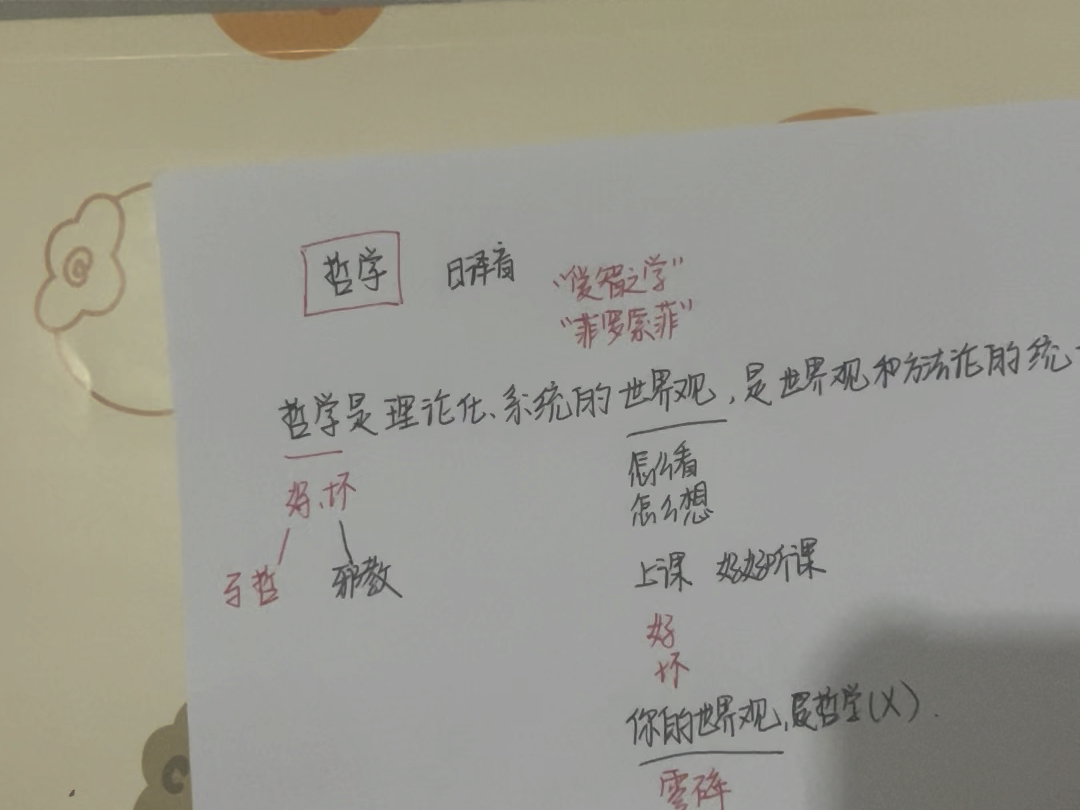 哲学 日译音 "爱智之学"
"菲罗索菲"
哲学是理论化、系统的世界观,是世界观和方法论的统
好、坏 怎么看
怎么想
马哲 邪教 上课 好好听课
好
坏
你的世界观,是哲学(X).
零碎